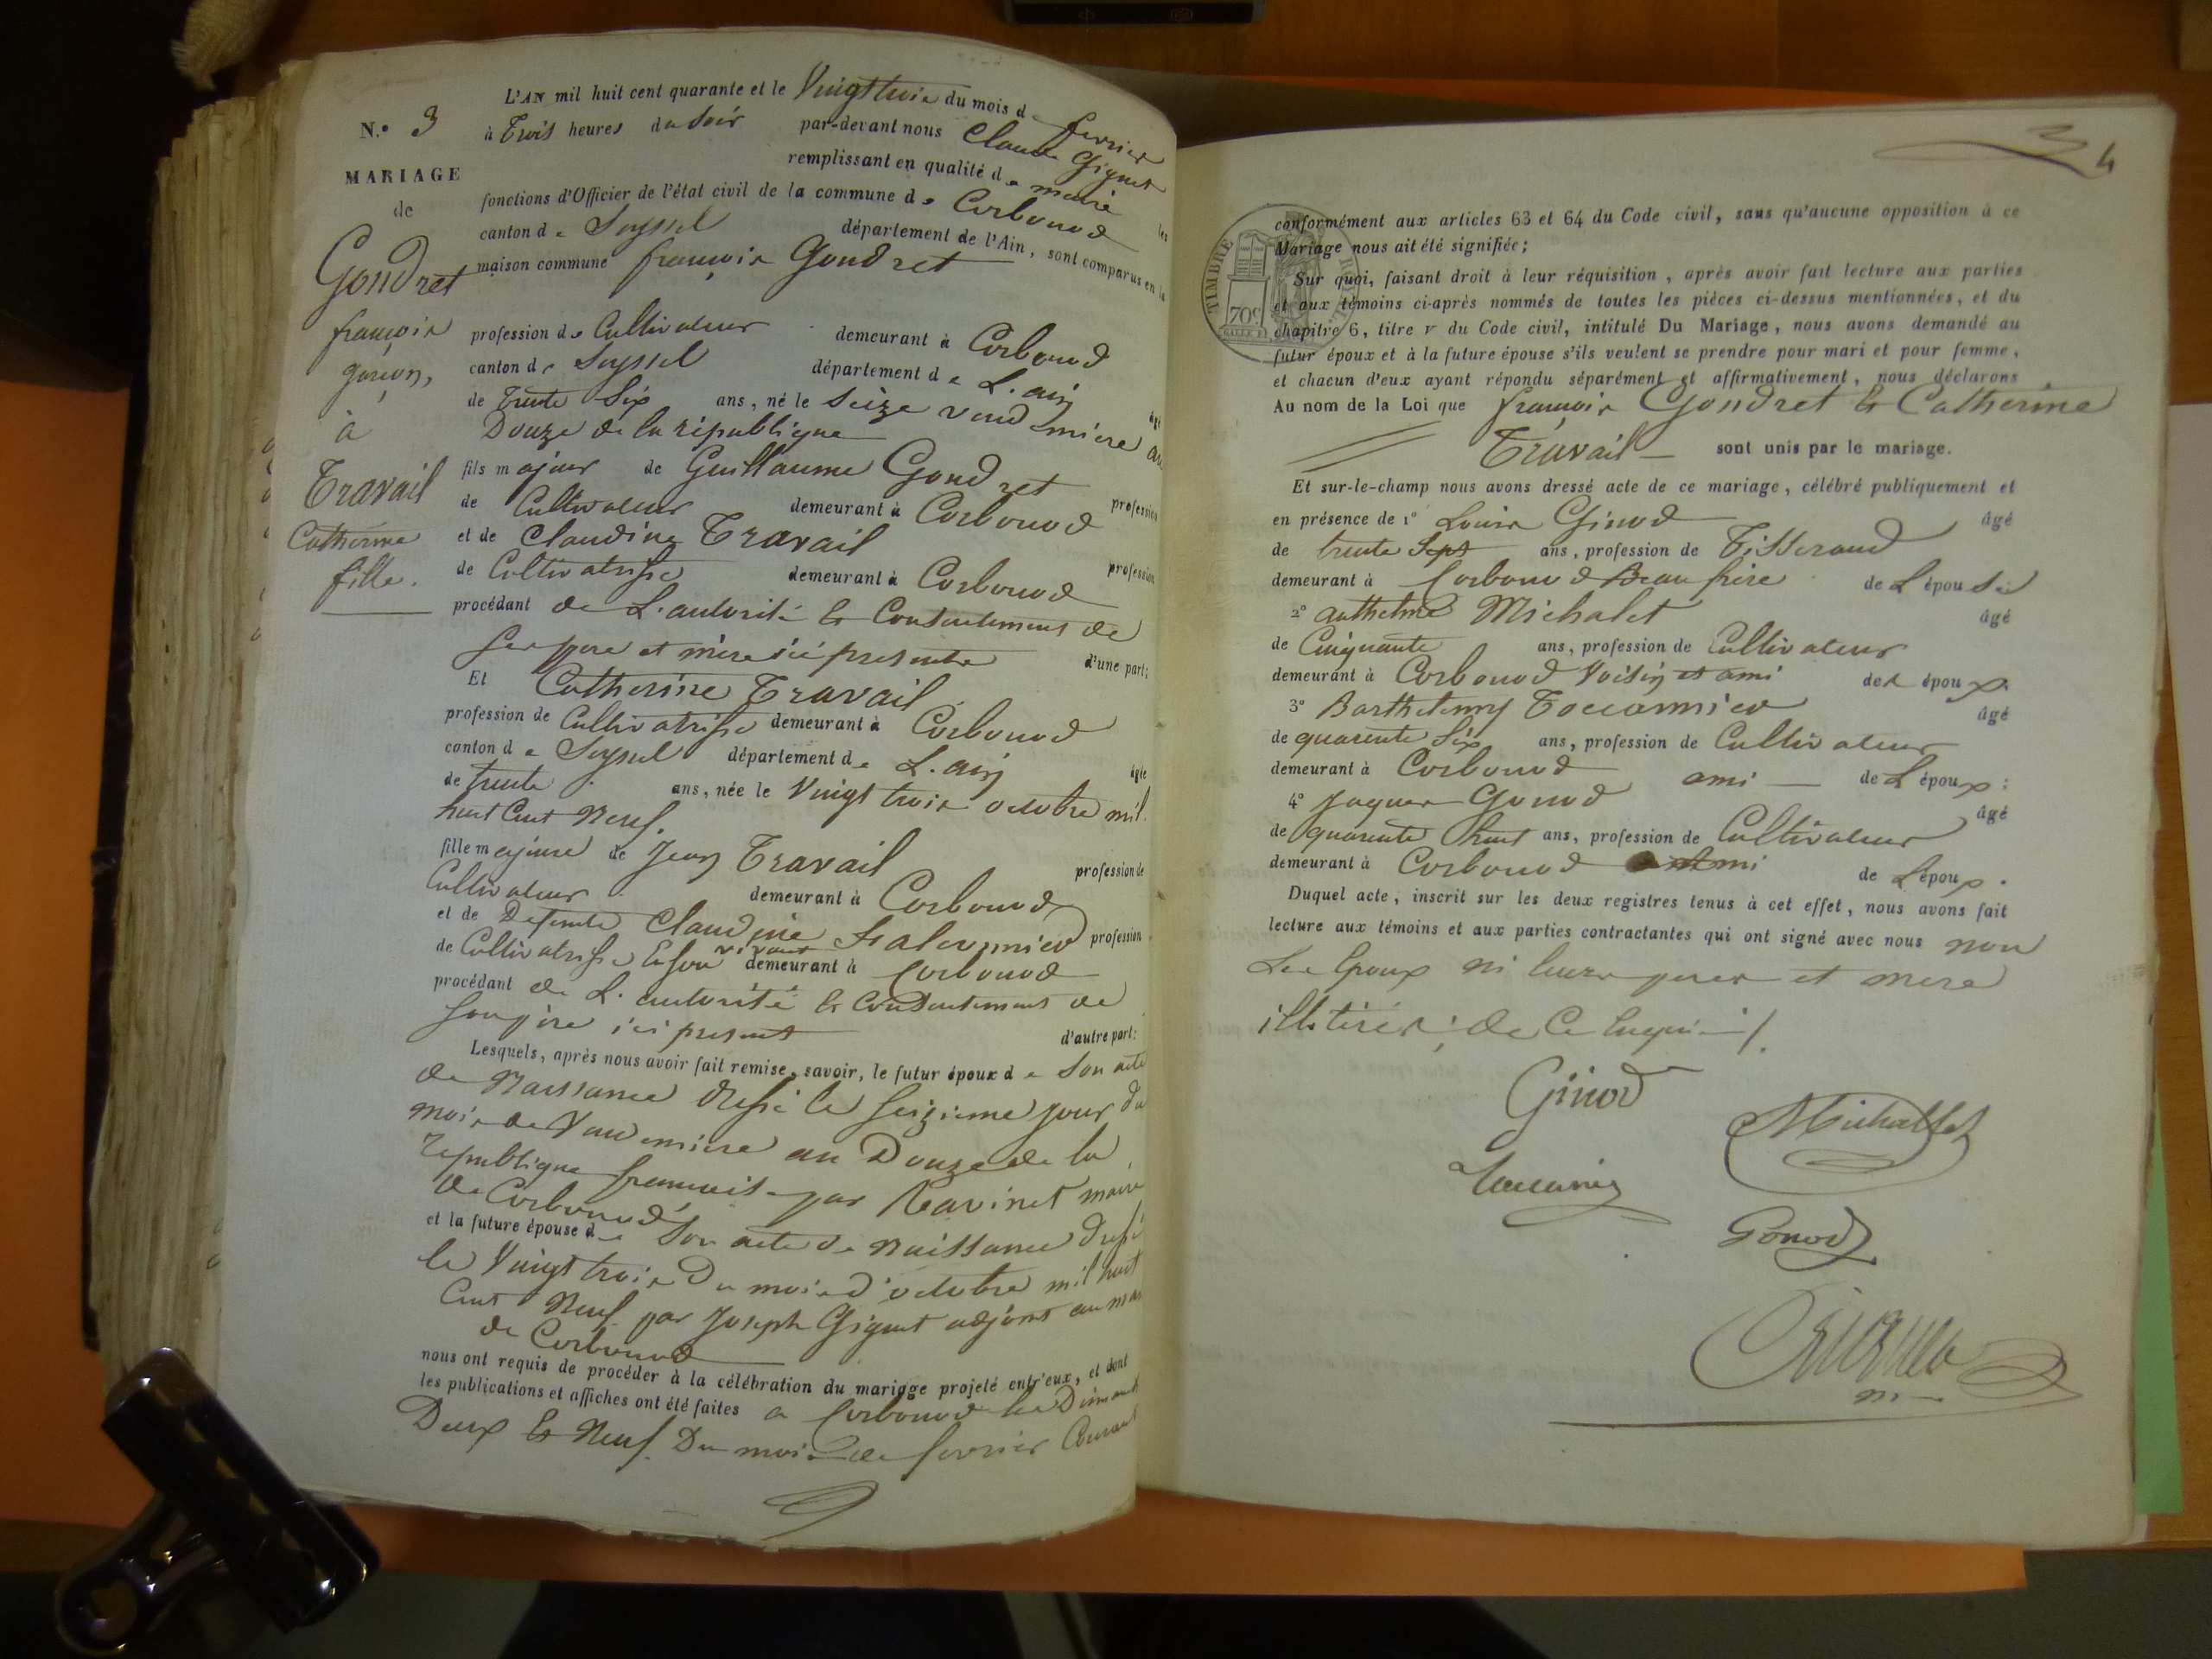 L'AN mil huit cent quarante et le Vingt trois du mois de fevrier
N.º 3
à Trois heures du Soir par-devant nous Claude Gignet
MARIAGE
remplissant en qualité de maire les
fonctions d'Officier de l'état civil de la commune de Corbonod
de
canton de Seyssel département de l'Ain, sont comparus en la
Gondret
maison commune françois Gondret
françois
profession de Cultivateur demeurant à Corbonod
garçon,
canton de Seyssel département de L'ain âgé
de Trente Six ans, né le Seize vendemiere an
à
Douze de la république
Travail
fils majeur de Guillaume Gondret profession
de Cultivateur demeurant à Corbonod
Catherine
et de Claudine Travail profession
fille.
de Cultivatrisse demeurant à Corbonod
procédant de L'autorité & Consentement de
ses pere et mere ici presents d'une part;
Et Catherine Travail
profession de Cultivatrisse demeurant à Corbonod
canton de Seyssel département de L'ain âgée
de trente ans, née le Vingt trois octobre mil
huit Cent Neuf.
fille majeure de Jean Travail profession de
Cultivateur demeurant à Corbonod
et de Defunte Claudine profession
de Cultivatrisse En son vivant demeurant à Corbonod
procédant de L'autorité & Consentement de
son père ici present d'autre part:
Lesquels, après nous avoir fait remise, savoir, le futur époux de Son acte
de Naissance dressé le Seizieme jour du
mois de Vendemiere an Douze de la
republique francaise par Ravinet maire
de Corbonod
et la future épouse de Son acte de Naissance dressé
le Vingt trois Du mois d'octobre mil huit
Cent Neuf par Joseph Gignet adjoint au maire
de Corbonod
nous ont requis de procéder à la célébration du mariage projeté entr'eux, et dont
les publications et affiches ont été faites a Corbonod les Dimanches
Deux & Neuf Du mois de fevrier Courant
4
conformément aux articles 63 et 64 du Code civil, sans qu'aucune opposition à ce
Mariage nous ait été signifiée;
TIMBRE ROYAL
70c
Sur quoi, faisant droit à leur réquisition, après avoir fait lecture aux parties
et aux témoins ci-après nommés de toutes les pièces ci-dessus mentionnées, et du
chapitre 6, titre v du Code civil, intitulé Du Mariage, nous avons demandé au
futur époux et à la future épouse s'ils veulent se prendre pour mari et pour femme,
et chacun d'eux ayant répondu séparément et affirmativement, nous déclarons
Au nom de la Loi que françois Gondret & Catherine
Travail sont unis par le mariage.
Et sur-le-champ nous avons dressé acte de ce mariage, célébré publiquement et
en présence de 1º Louis Ginod âgé
de trente Sept ans, profession de Tisserand
demeurant à Corbonod Beau frère de L'épouse
2º anthelme Michalet âgé
de Cinquante ans, profession de Cultivateur
demeurant à Corbonod Voisin et ami des époux
3º Barthelemy âgé
de quarente Six ans, profession de Cultivateur
demeurant à Corbonod ami de L'époux;
4º Jaques Gonod âgé
de quarente huit ans, profession de Cultivateur
demeurant à Corbonod Ami de L'époux.
Duquel acte, inscrit sur les deux registres tenus à cet effet, nous avons fait
lecture aux témoins et aux parties contractantes qui ont signé avec nous non
Les Epoux ni leurs peres et mere
illitérés; de Ce Enquis /.
Ginod
Michallet
Gonod